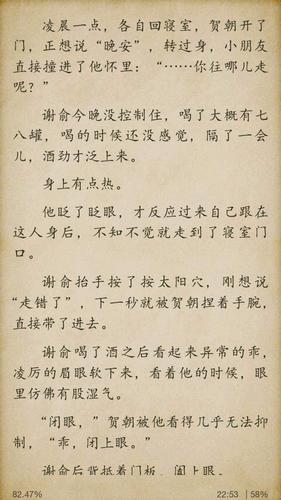 凌晨一点，各自回寝室，贺朝开了
门，正想说“晚安”，转过身，小朋友
直接撞进了他怀里：“……你往哪儿走
呢？”
谢俞今晚没控制住，喝了大概有七
八罐，喝的时候还没感觉，隔了一会
儿，酒劲才泛上来。
身上有点热。
他眨了眨眼，才反应过来自己跟在
这人身后，不知不觉就走到了寝室门
口。
谢俞抬手按了按太阳穴，刚想说
“走错了”，下一秒就被贺朝捏着手腕，
直接带了进去。
谢俞喝了酒之后看起来异常的乖，
凌厉的眉眼软下来，看着他的时候，眼
里仿佛有股湿气。
“闭眼，”贺朝被他看得几乎无法抑
制，“乖，闭上眼。”
谢俞后背抵着门板，阖上眼。
82.47%
22:53 | 58%